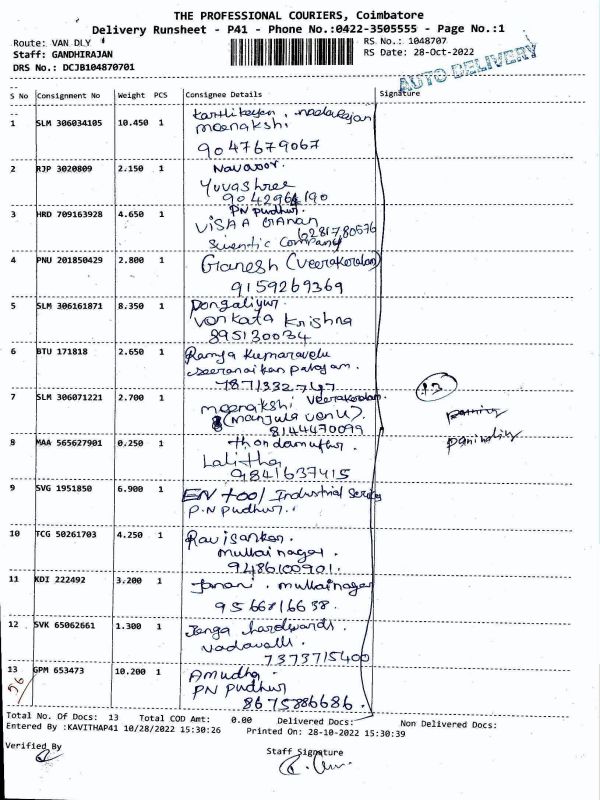 THE PROFESSIONAL COURIERS, Coimbatore
Delivery Runsheet - P41 - Phone No.:0422-3505555 - Page No.:1
Route: VAN DLY
RS No.: 1048707
Staff: GANDHIRAJAN
RS Date: 28-Oct-2022
DRS No.: DCJB104870701
AUTO DELIVERY
S No Consignment No Weight PCS Consignee Details Signature
1 SLM 306034105 10.450 1
meenakshi
9047679067
2 RJP 3020809 2.150 1
Yuvashree
3 HRD 709163928 4.650 1 PN pudhur.
Company
4 PNU 201850429 2.800 1 Ganesh (Veerakeralam)
9159269369
5 SLM 306161871 8.350 1
Venkata Krishna
895130034
6 BTU 171818 2.650 1 Ramya Kumaravelu
7871332747
7 SLM 306071221 2.700 1 meenakshi Veerakeralam
(Manjula venu).
8144470099
8 MAA 565627901 0.250 1
Lalitha
9841637415
9 SVG 1951850 6.900 1 EN tool Industrial
P.N Pudhur.
10 TCG 50261703 4.250 1 Ravisankar.
mullai nagar.
9486100901.
11 KDI 222492 3.200 1 Janani. mullainagar
12 SVK 65062661 1.300 1
vadavalli.
7373715400
13 GPM 653473 10.200 1 Amudha.
PN pudhur
8675886686.
Total No. Of Docs: 13 Total COD Amt: 0.00 Delivered Docs: Non Delivered Docs:
Entered By :KAVITHAP41 10/28/2022 15:30:26 Printed On: 28-10-2022 15:30:39
Verified By
Staff Signature